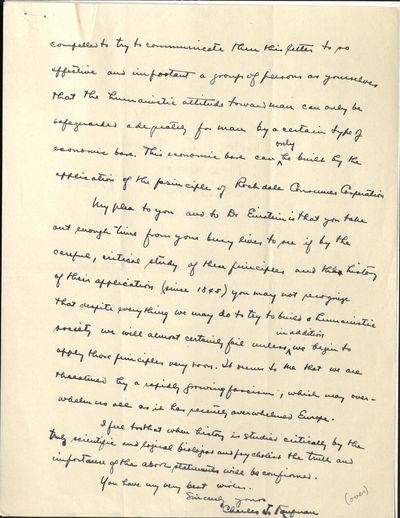 compelled to try to communicate thru this letter to so
effective and important a group of persons as yourselves
that the humanistic attitude toward man can only be
safeguarded adequately for man by a certain type of
only
economic base. This economic base can ^ be built by the
application of the principle of Rochdale Consumer Cooperation
My plea to you and to Dr Einstein is that you take
out enough time from your busy lives to see if by the
careful, critical study of these principles and the history
of their application (since 1845) you may not recognize
that despite everything we may do to try to build a humanistic
in addition
society we will almost certainly fail unless ^ we begin to
apply those principles very soon. It seems to me that we are
threatened by a rapidly growing fascism, which may over-
whelm us all as it has recently overwhelmed Europe.
I feel too that when history is studied critically by the
truly scientific and logical biologist and psychologist the truth and
importance of the above statements will be confirmed.
You have my very best wishes.
Sincerely yours
Charles
(over)